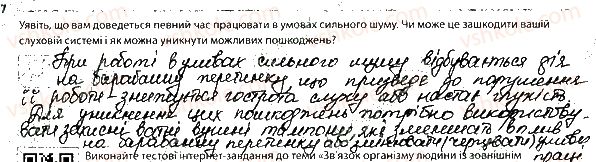 7
Уявіть, що вам доведеться певний час працювати в умовах сильного шуму. Чи може це зашкодити вашій
слуховій системі і як можна уникнути можливих пошкоджень?
При роботі в умовах сильного шуму відбувається дія
на барабанну перетинку що призведе до порушення
її роботи - знижується гострота слуху або настає глухість.
Для уникнення цих пошкоджень потрібно використову-
вати захисні ватні вушні тампони, які зменшать вплив
на барабанну перетинку або змінювати (чергувати) умови
Виконайте тестові інтернет-завдання до теми «Зв'язок організму людини із зовнішнім
праці